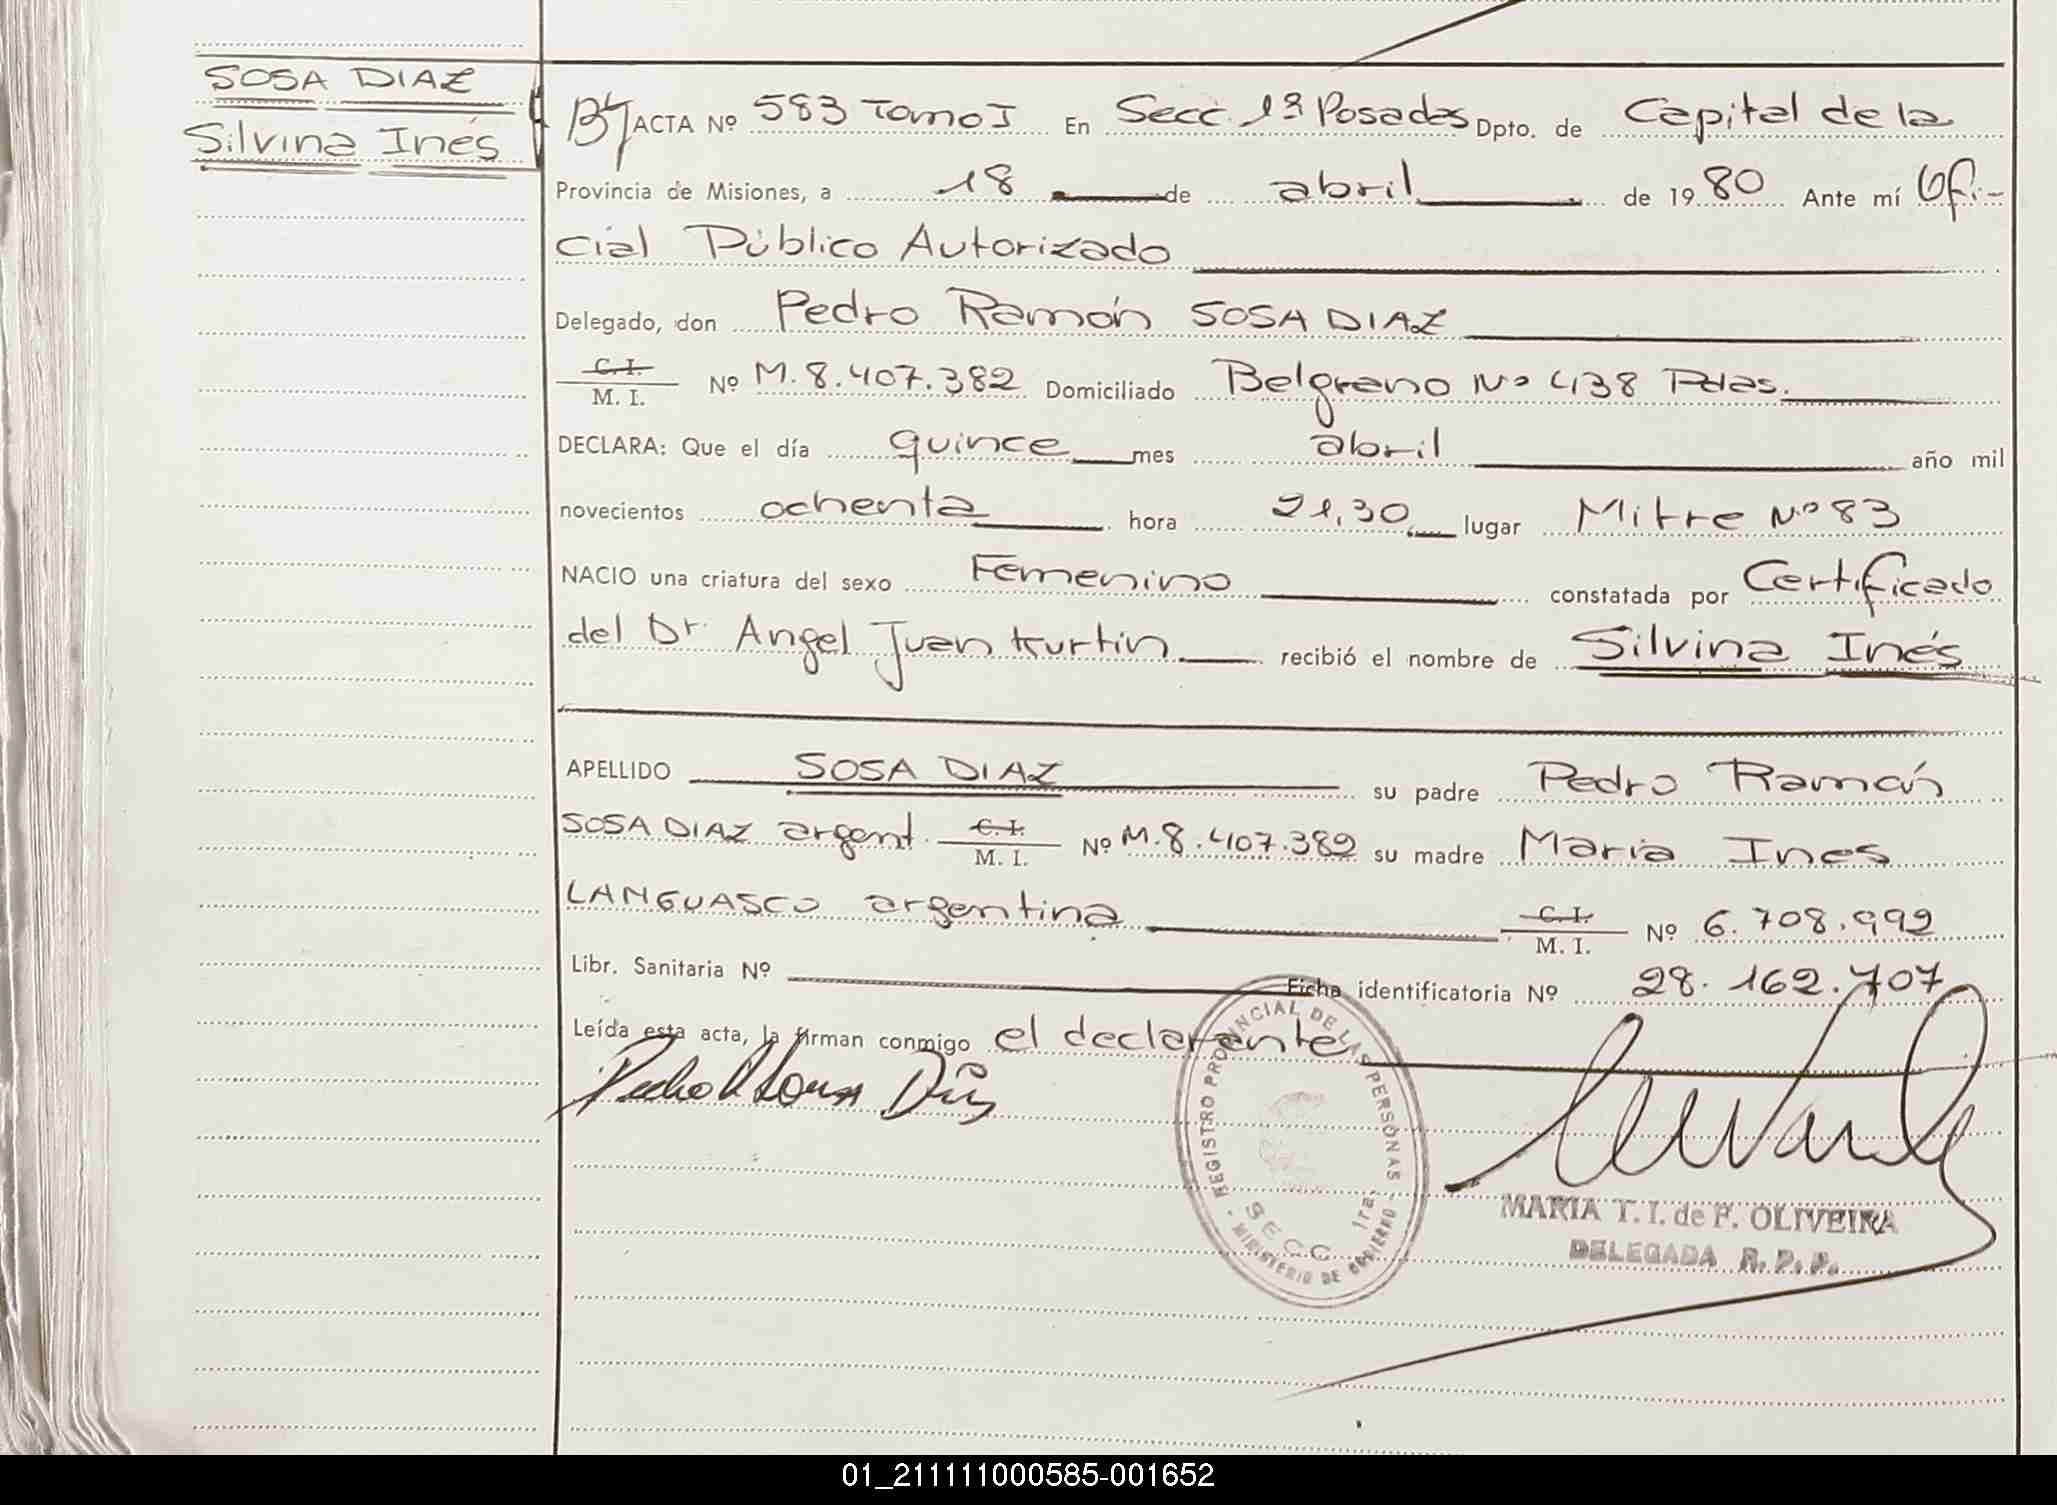 SOSA DIAZ
Silvina Inés
ACTA Nº 583 Tomo I En Secc. 1ª Posadas Dpto. de Capital de la
Provincia de Misiones, a 18 de abril de 1980 Ante mí Ofi-
cial Público Autorizado
Delegado, don Pedro Ramón SOSA DIAZ
C. I.
M. I. Nº M. 8.407.382 Domiciliado Belgrano Nº 438 Pdas.
DECLARA: Que el día quince mes abril año mil
novecientos ochenta hora 21,30 lugar Mitre Nº 83
NACIO una criatura del sexo Femenino constatada por Certificado
del Dr. Angel Juan Kurtin recibió el nombre de Silvina Inés
APELLIDO SOSA DIAZ su padre Pedro Ramón
SOSA DIAZ argent. C. I. M. I. Nº M. 8.407.382 su madre Maria Ines
LANGUASCO argentina C. I. M. I. Nº 6.708.992
Libr. Sanitaria Nº Ficha identificatoria Nº 28.162.707
Leída esta acta, la firman conmigo el declarante
REGISTRO PROVINCIAL DE LAS PERSONAS
SECC. 1ra.
MINISTERIO DE GOBIERNO
MARIA T. I. de F. OLIVEIRA
DELEGADA R. P. P.
01_211111000585-001652